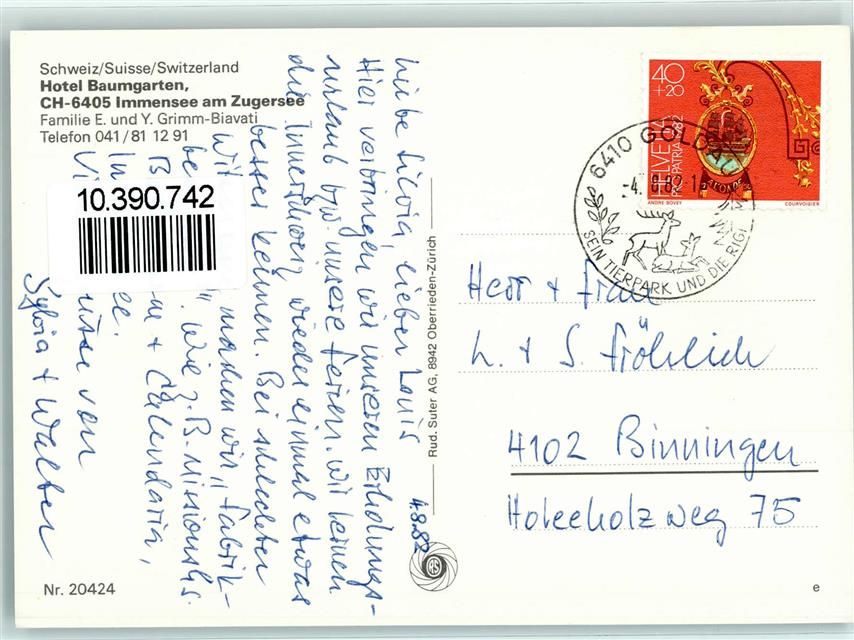 Schweiz/Suisse/Switzerland
Hotel Baumgarten,
CH-6405 Immensee am Zugersee
Familie E. und Y. Grimm-Biavati
Telefon 041/81 12 91
10.390.742
4.8.82
Liebe Silvia, lieber Louis
Hier verbringen wir unseren Erholungs-
urlaub bzw. unsere Ferien. Wir lernen
die Innerschweiz wieder einmal etwas
besser kennen. Bei schlechter
Wit machen wir "Fabrik-
be". Wie z.B. Missionshs.
B + Calendaria,
In ee.
Vi üsse von
Sylvia + Walter
Nr. 20424
Rud. Suter AG, 8942 Oberrieden-Zürich
40
+20
HELVETIA
PRO PATRIA 1982
ANDRE BOVEY
COURVOISIER
6410 GOLDAU
-4. 8.82-1
SEIN TIERPARK UND DIE RIGI
Herr + Frau
L. + S. Fröhlich
4102 Binningen
Holeeholzweg 75
e